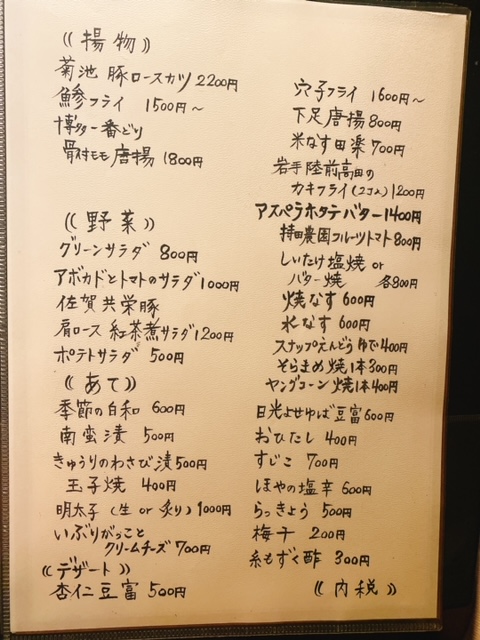 《揚物》
菊池 豚ロースカツ 2200円
鯵フライ 1500円〜
博多一番どり
骨付モモ唐揚 1800円
穴子フライ 1600円〜
下足唐揚 800円
米なす田楽 700円
岩手陸前高田の
カキフライ(2コ入) 1200円
アスパラホタテバター 1400円
《野菜》
グリーンサラダ 800円
アボカドとトマトのサラダ 1000円
佐賀共栄豚
肩ロース 紅茶煮サラダ 1200円
ポテトサラダ 500円
持田農園フルーツトマト 800円
しいたけ塩焼 or
バター焼 各800円
焼なす 600円
水なす 600円
スナップえんどうゆで 400円
そらまめ焼1本 300円
ヤングコーン焼1本 400円
《あて》
季節の白和 600円
南蛮漬 500円
きゅうりのわさび漬 500円
玉子焼 400円
明太子(生 or 炙り) 1000円
いぶりがっこと
クリームチーズ 700円
日光よせゆば豆富 600円
おひたし 400円
すじこ 700円
ほやの塩辛 600円
らっきょう 500円
梅干 200円
糸もずく酢 300円
《デザート》
杏仁豆富 500円
《内税》